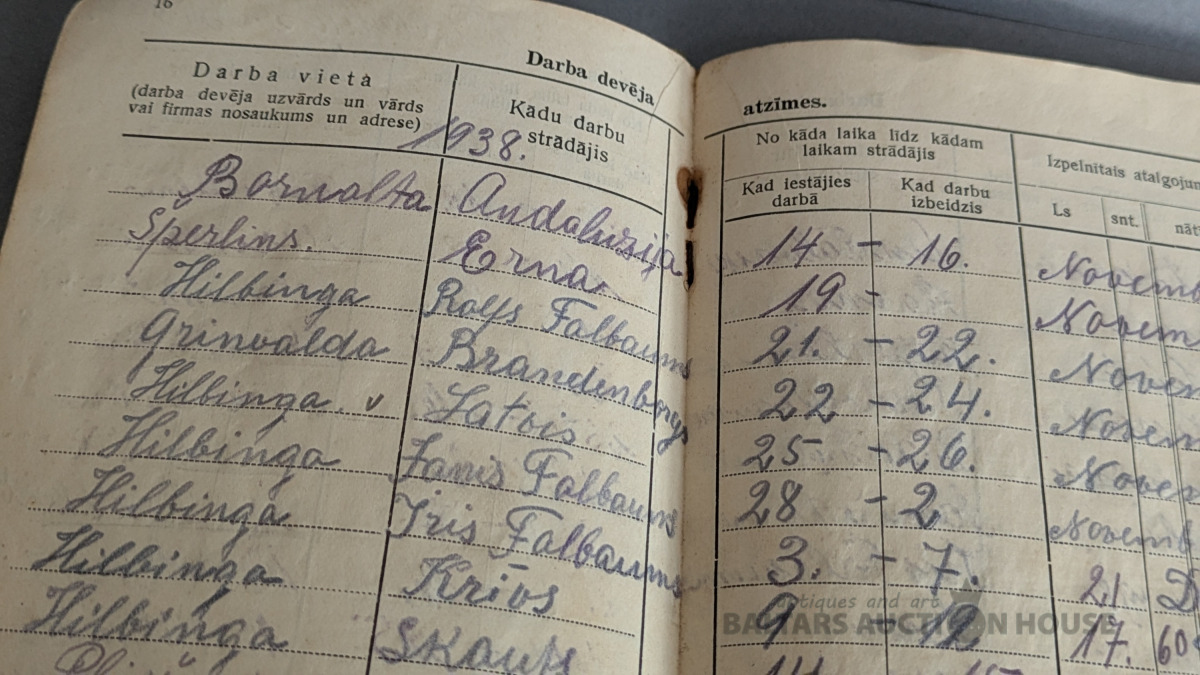 16
Darba devēja
atzīmes.
Darba vieta
(darba devēja uzvārds un vārds
vai firmas nosaukums un adrese)
Kādu darbu
strādājis
No kāda laika līdz kādam
laikam strādājis
Kad iestājies
darbā
Kad darbu
izbeidzis
Izpelnītais atalgojum
Ls snt. nāt
1938.
Bornalta Andaluzija 14 - 16. Novem
Šperlins. Erna. 19 - Novem
Hilbinga Rolfs Falbaums 21. - 22. Novem
Grinvalda Brandenburgs 22 - 24. Novem
Hilbinga v Latvis 25 - 26. Novem
Hilbinga Janis Falbaums 28 - 2 Novemb
Hilbinga Iris Falbaums 3. - 7. 21 D
Hilbinga Krios 9 - 12 17. 60
Hilbinga Skauts 14 15
antiques and art
BALTARS AUCTION HOUSE